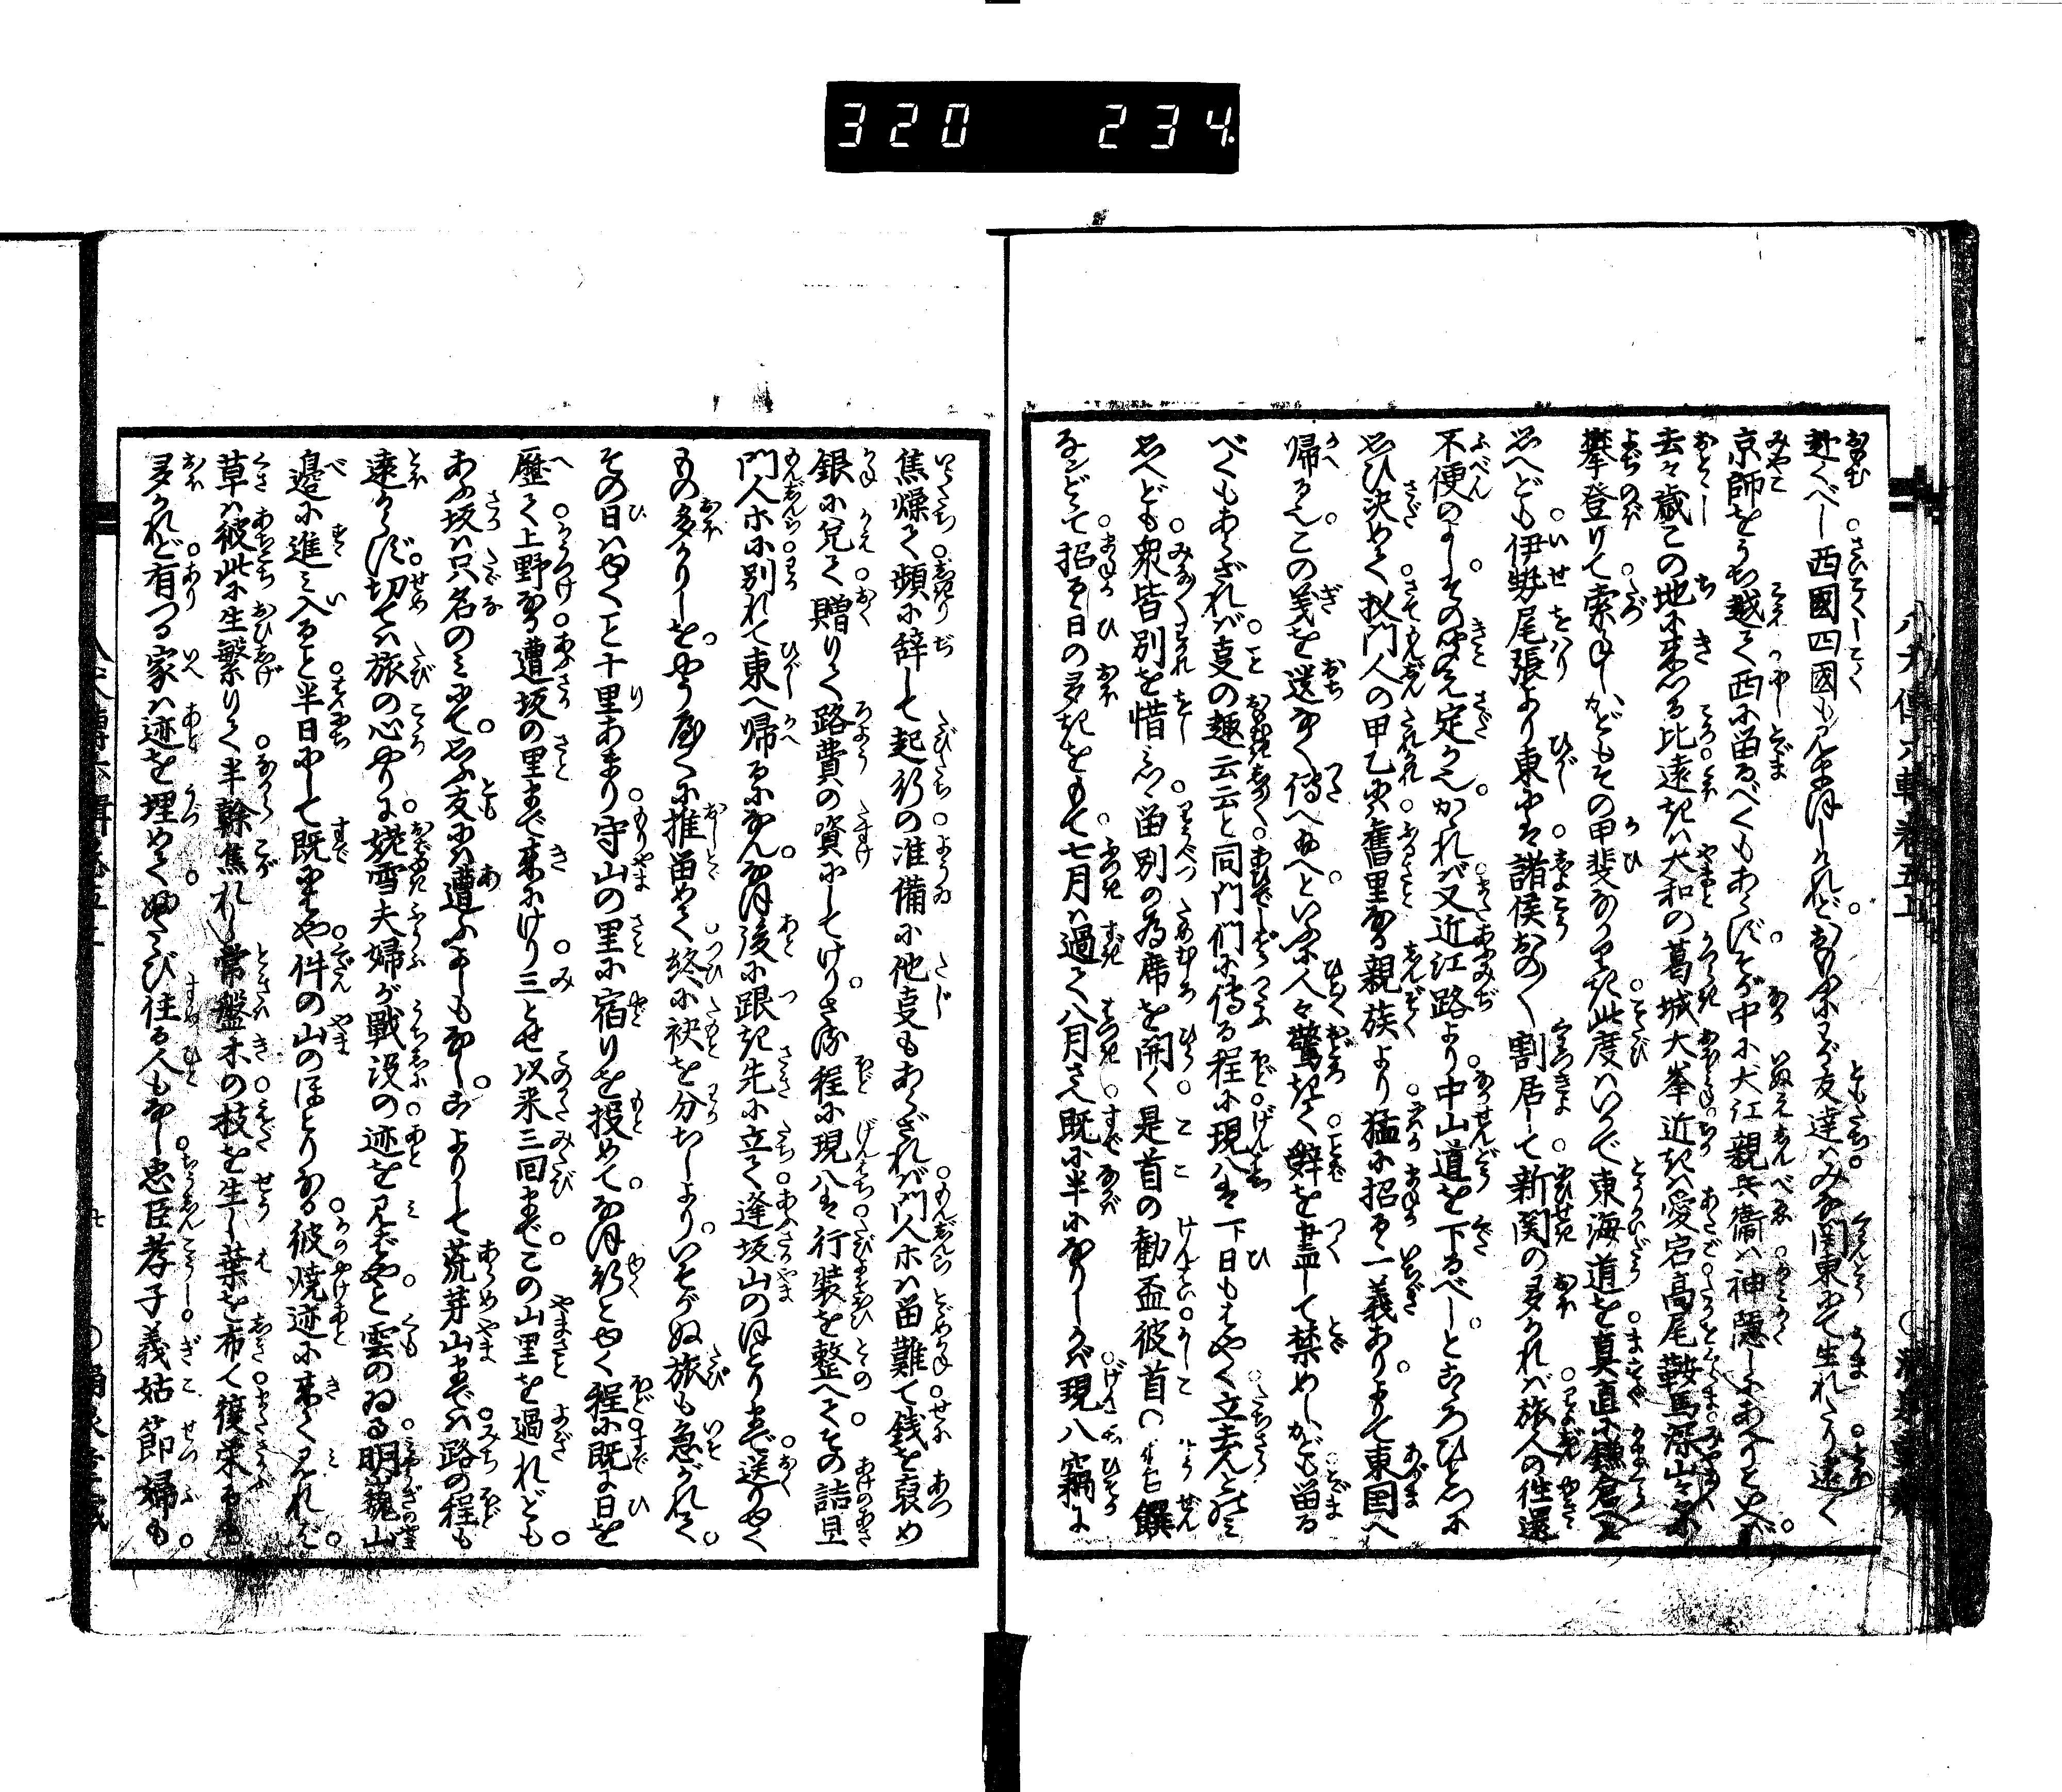 320 234
赴くべし西國四國も見まほしけれどおなじわが友達はみな関東にて生れたり遠く
京師をうち越て西に留るべくもあらずそが中に犬江親兵衛は神隠しにあへりといへば
去々歳この地に来つる比遠きは大和の葛城大峯近きは愛宕高尾鞍馬深山々に
攀登りて索ねしかどもその甲斐なかりき此度はいかで東海道を真直に鎌倉へと
思へども伊勢尾張より東には諸侯おの〱割居して新関の多かれば旅人の往還
不便のよしその聞え定かならんかれば又近江路より中山道を下るべしとこゝろひとつに
思ひ決めて扨門人の甲乙に舊里なる親族より猛に招る一義ありよりて東国へ
帰るなりこの義を送なく傳へ給へといふに人々驚きて辞を盡して禁めしかども留る
べくもあらざれば㕝の趣云云と同門們に傳る程に現八は一下日もはやく立去んとのみ
思へども衆皆別を惜みて留別の為席を開く是首の勧盃彼首の饌
などゝて招るゝ日の多きをもて七月は過て八月さへ既に半になりしかば現八竊に
焦燥て頻に辞して起行の准備に他㕝もあらざれば門人ホは留難て銭を裒め
銀に兌て贈りて路費の資にしてけりさる程に現八は行装を整へてその詰旦
門人ホに別れて東へ帰るになん なほ後に跟き先に立て逢坂山のほとりまで送りゆく
もの多かりしをやうやくに推留めて終に袂を分ちしよりいそがぬ旅も急がれて
その日はゆくこと十里あまり守山の里に宿りを投めてなほ行とゆく程に既に日を
歴て上野なる遭坂の里まで来にけり三とせ以来三回までこの山里を過れども
あふ坂は只名のみにて思ふ友には遭ふよしもなしこゝよりして荒芽山までは路の程も
遠からず切ては旅の心やりに姥雪夫婦が戰没の迹を見ばやと雲のゐる明巍山
邉に進み入ること半日にして既にや件の山のほとりなる彼焼迹に来て見れば
草は彼此に生繁りて半幹焦れし常盤木の枝を生し葉を布て復栄るも
多かれど有つる家は迹を埋めてふたゝび住る人もなし忠臣孝子義姑節婦も